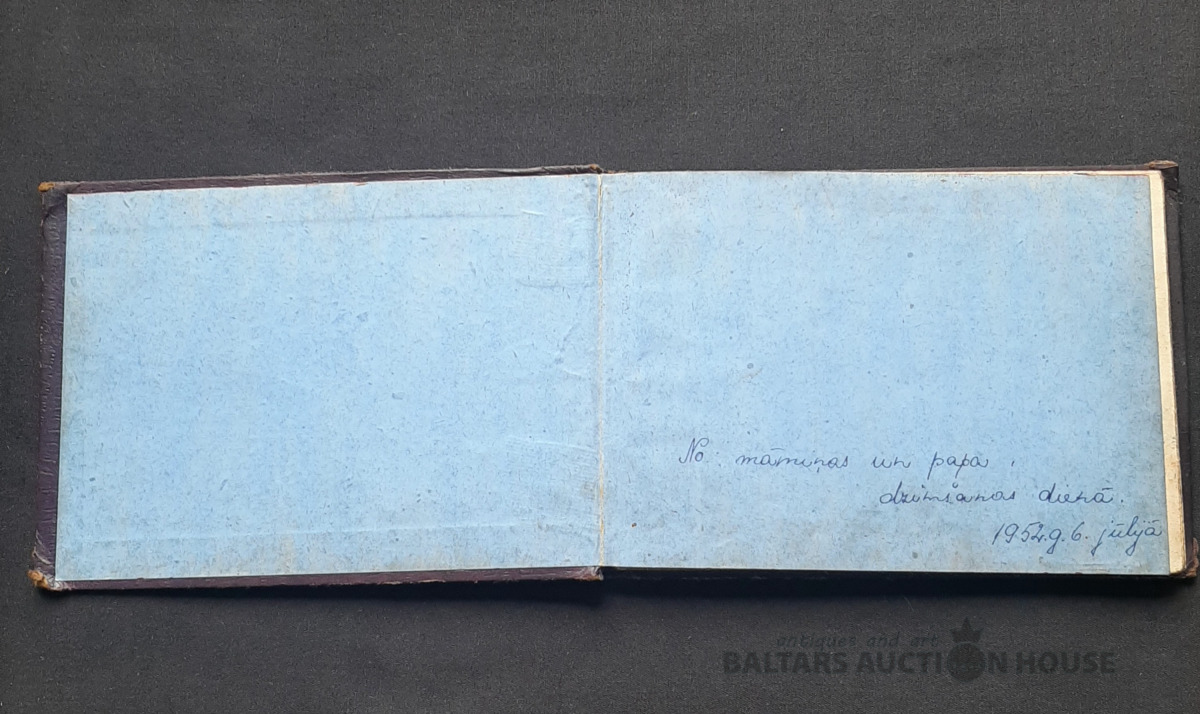 No māmiņas un papa,
dzimšanas dienā.
1952.g.6. jūlijā
antiques and art
BALTARS AUCTION HOUSE